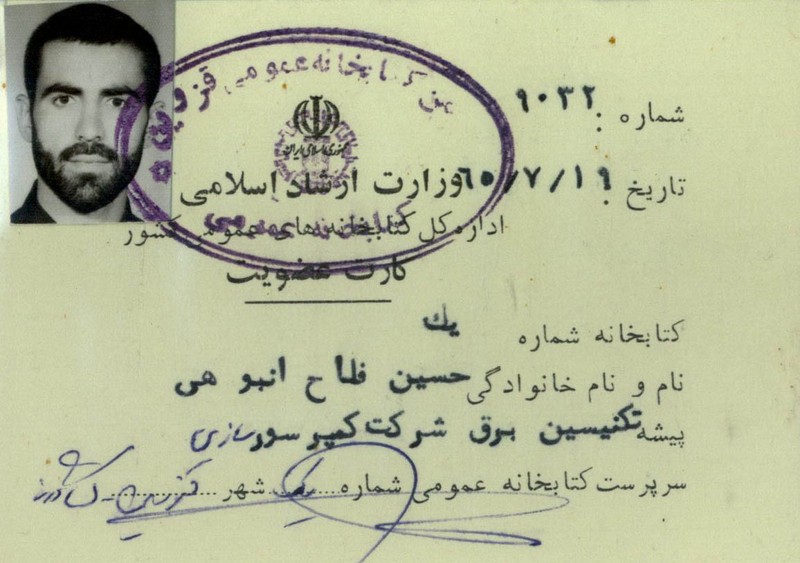 شماره : ۹۰۳۲
جمهوری اسلامی ایران
تاریخ : ۶۰/۷/۱۹
وزارت ارشاد اسلامی
اداره کل کتابخانه‌های عمومی کشور
کارت عضویت
کتابخانه عمومی قزوین
کتابخانه شماره یك
نام و نام خانوادگی حسین فلاح انبوهی
پیشه تکنیسین برق شرکت کمپرسورسازی
سرپرست کتابخانه عمومی شماره ..... یک ..... شهر ..... قزوین .....